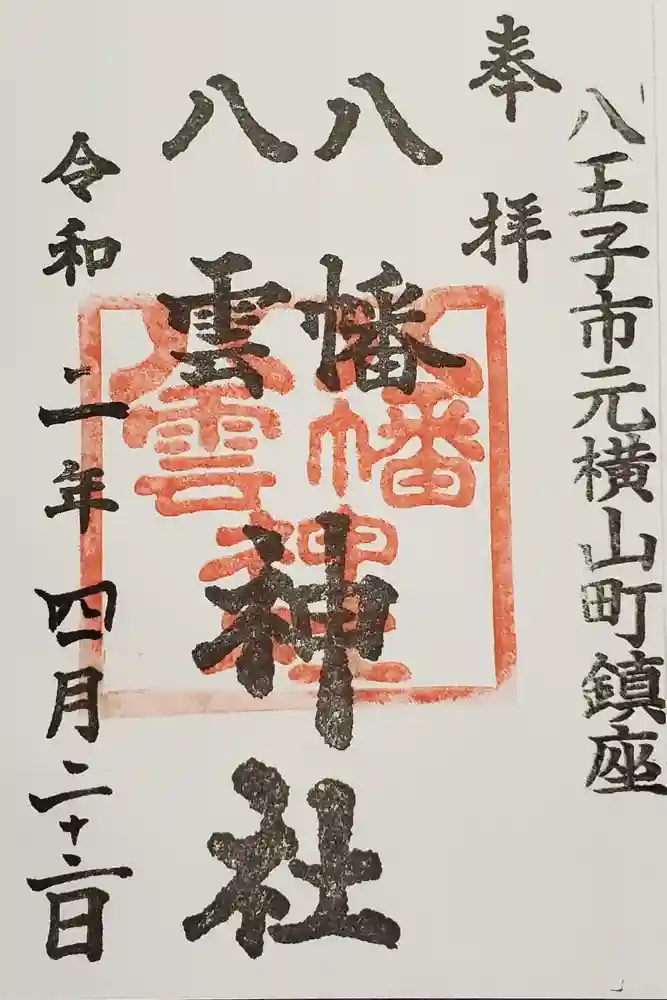 八王子市元横山町鎮座
奉拝
八幡
八雲
神社
令和二年四月二十六日
八幡
八雲
神